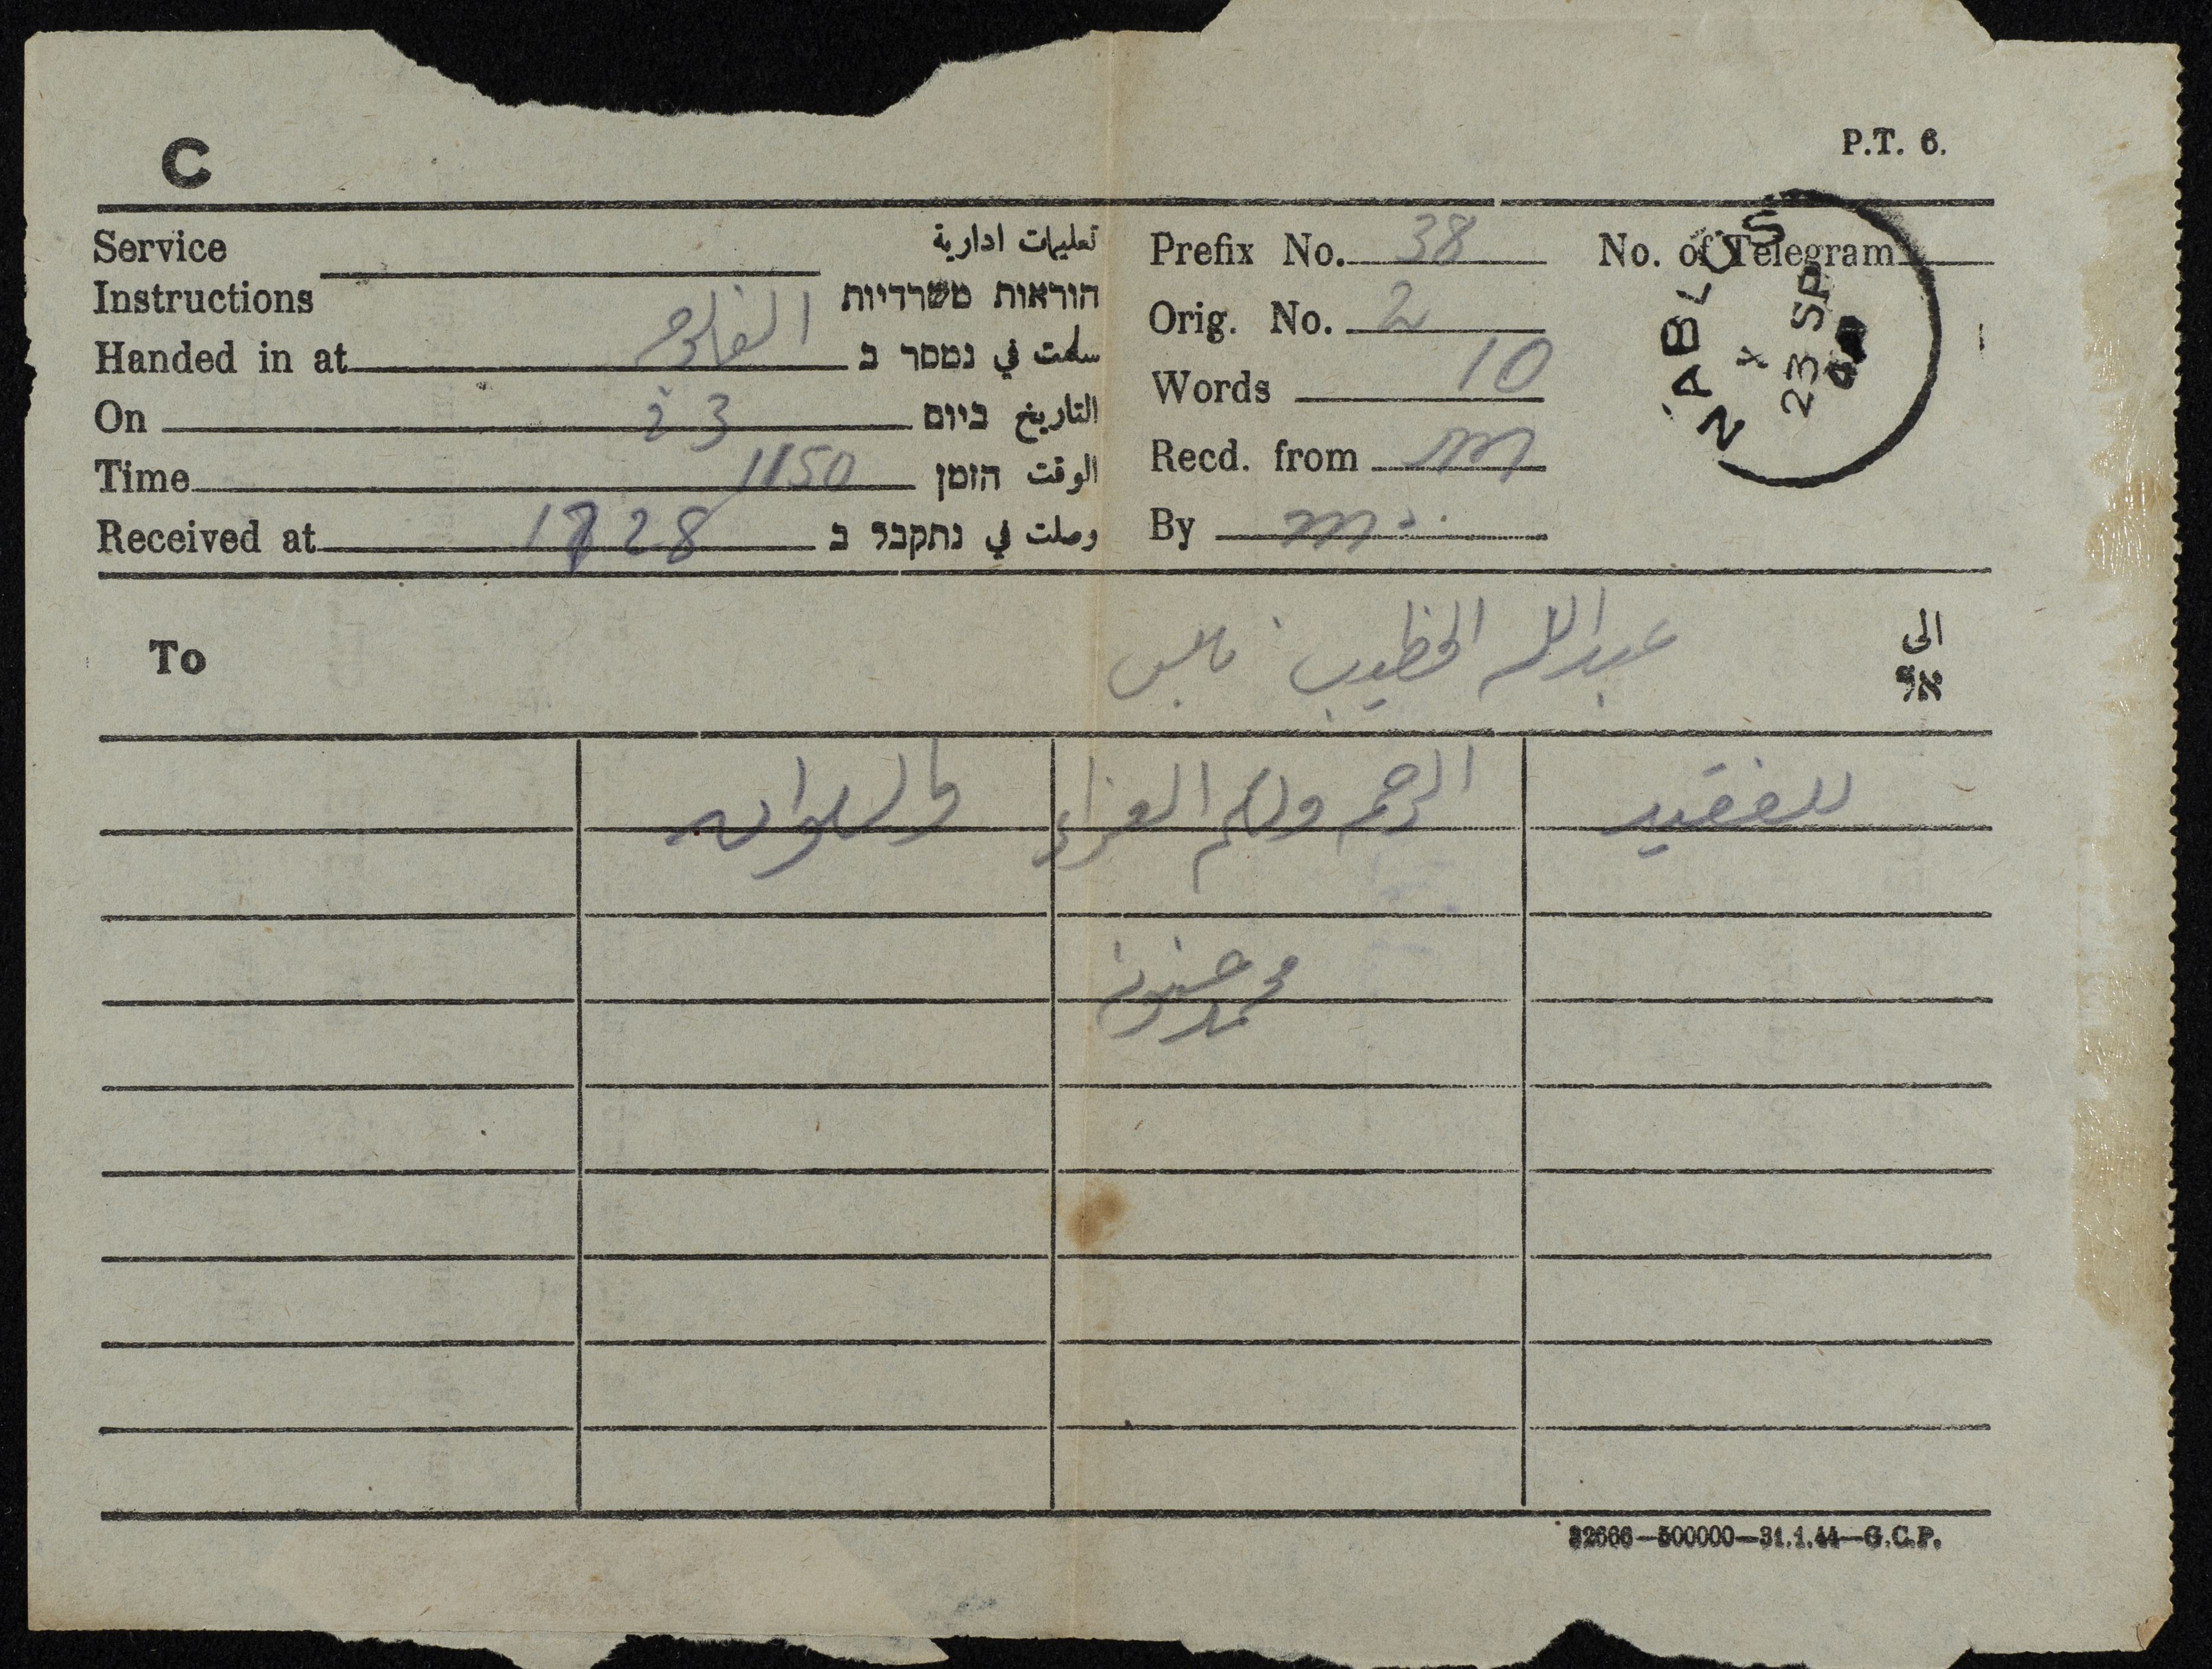 C
P.T. 6.
Service Instructions تعليمات ادارية
הוראות משרדיות
Handed in at الفالوجه سلمت في נמסר ב
On 23 التاريخ ביום
Time 1150 الوقت הזמן
Received at 1728 وصلت في נתקבל ב
Prefix No. 38 No. of Telegram
Orig. No. 2
Words 10
Recd. from m
By
NABLUS
23 SP
To عبدالله الخطيب نابلس الى
אל
للفقيد الرحمه ولكم العزاء والسلوان
محمد حنون
32666—500000—31.1.44—G.C.P.